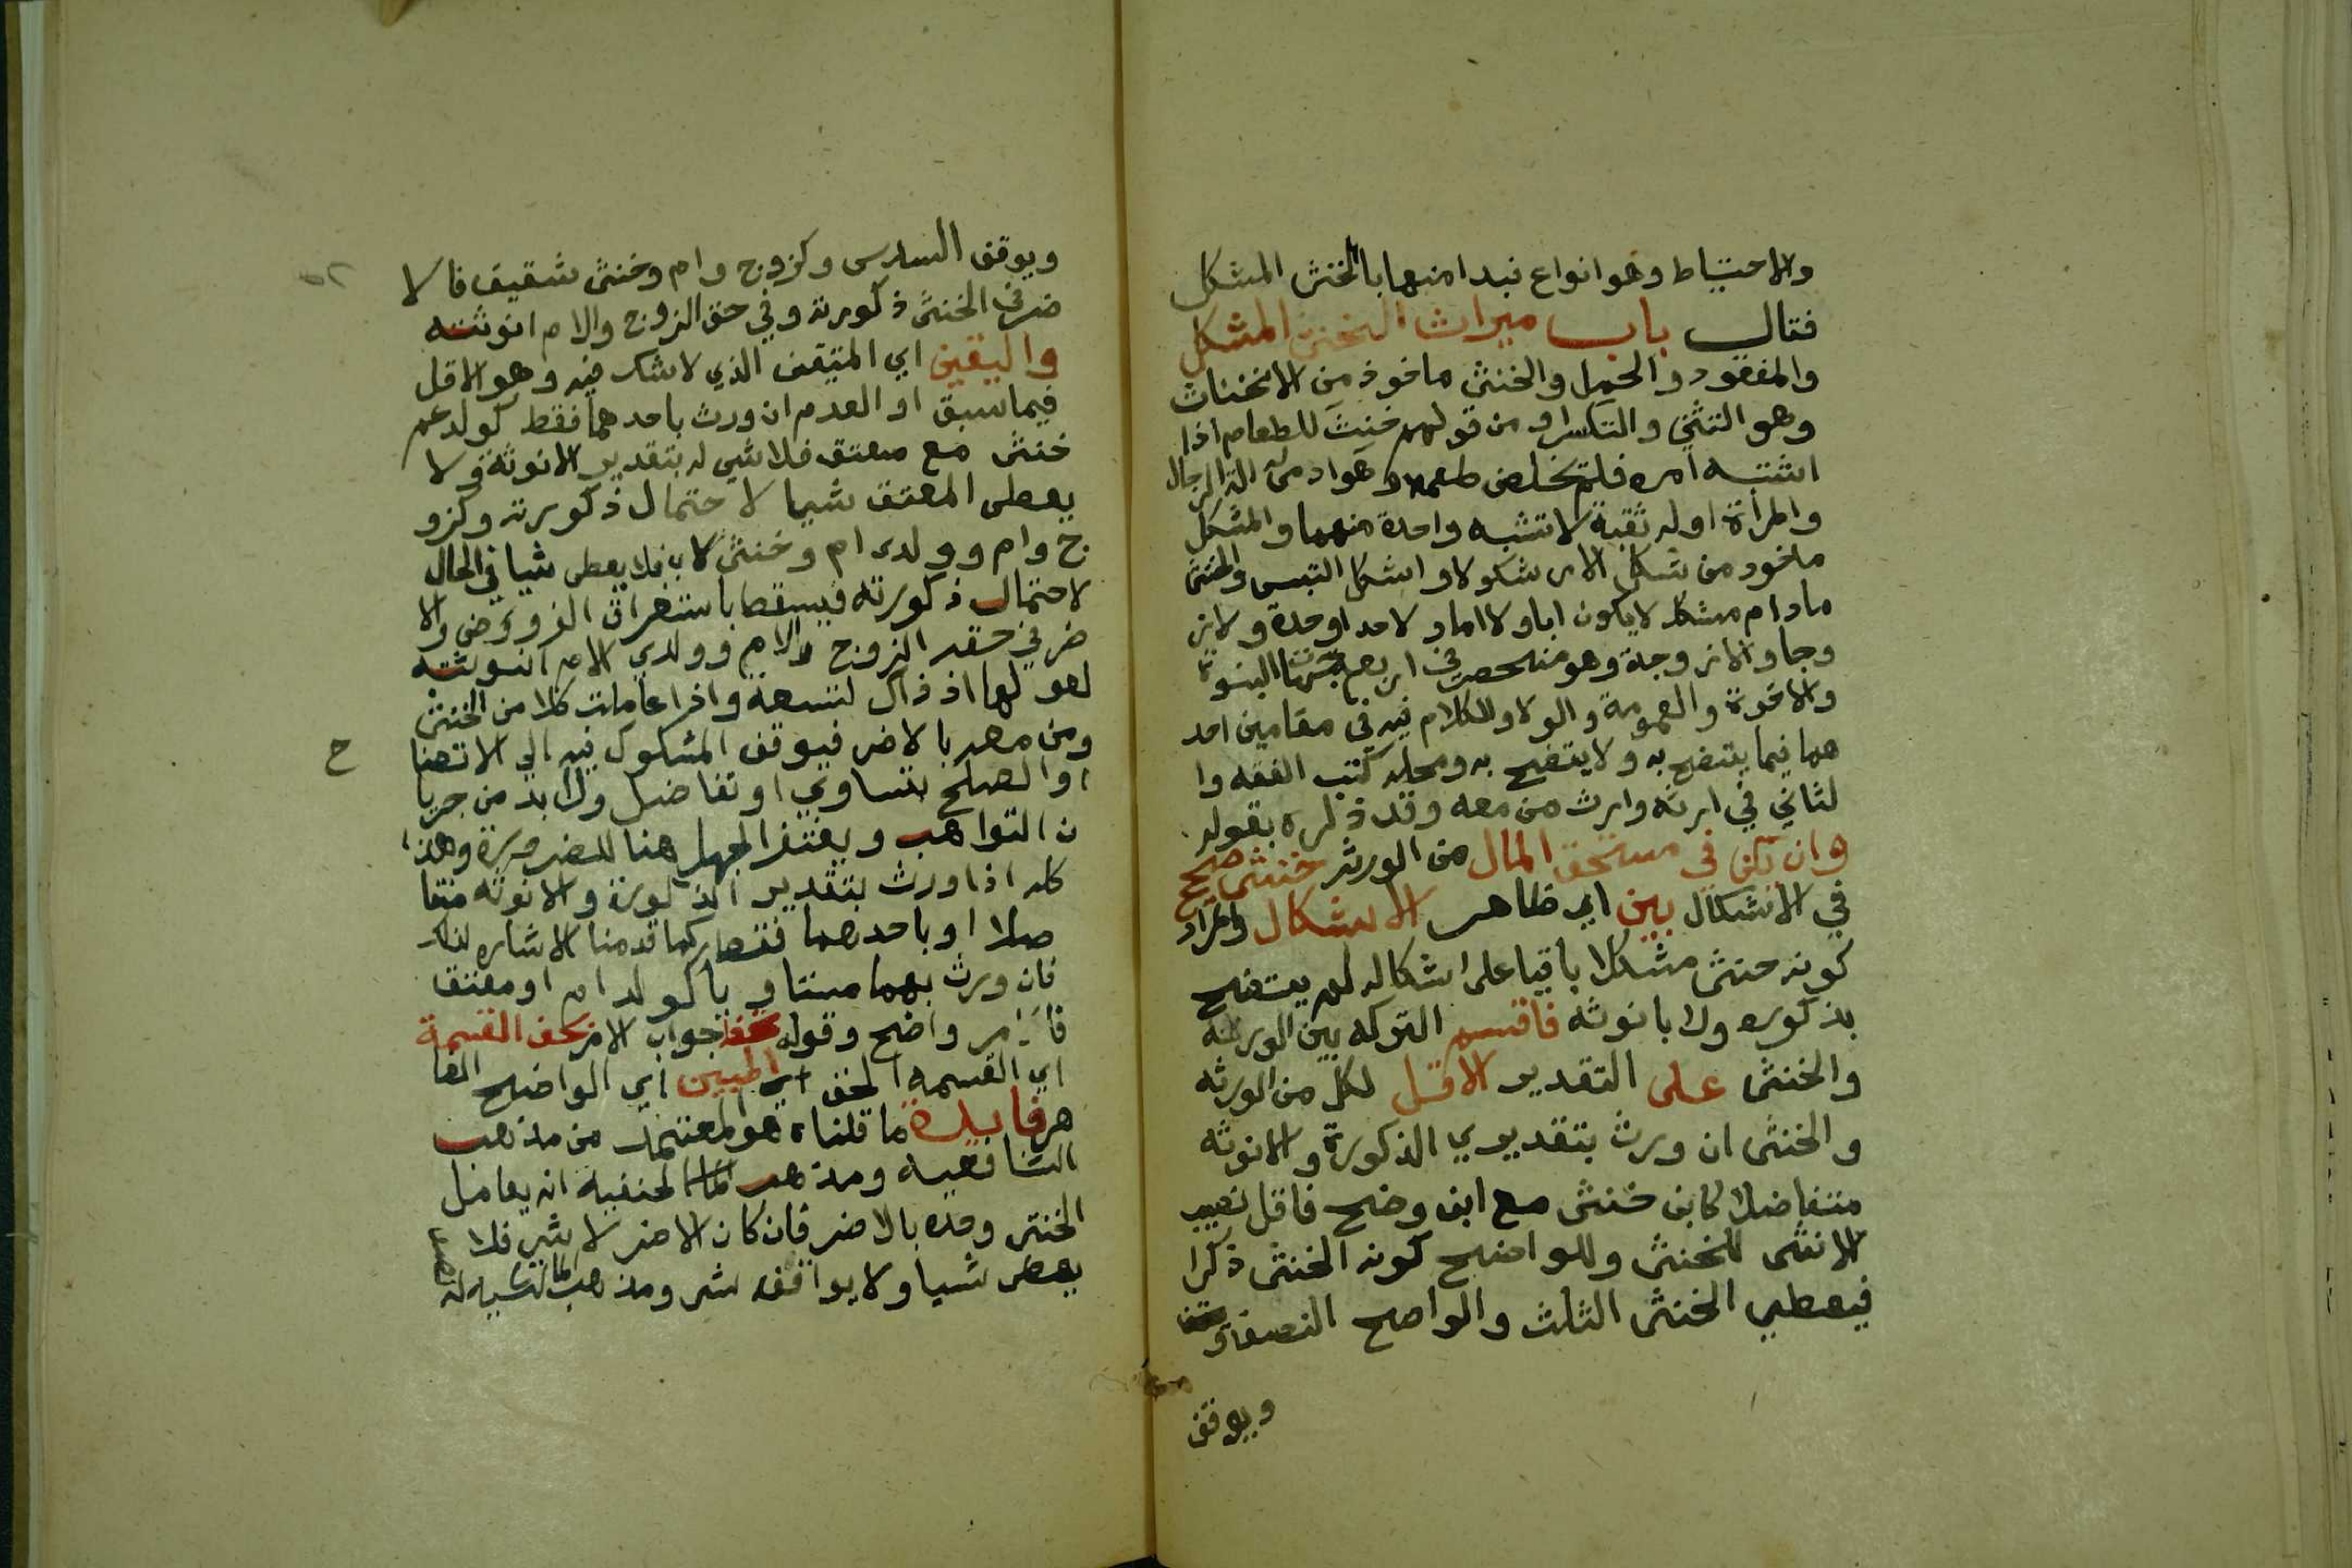 والاحتياط وهو انواع نبدا منها بالخنثى المشكل
فقال باب ميراث الخنثى المشكل
والمفقود والحمل والخنثى ماخوذ من الانخناث
وهو التثني والتكسر او من قولهم خنث للطعام اذا
اشتبه امره فلم يخلص طعمه وهو ادمي له الة الرجال
والمرأة او له ثقبة لا تشبه واحدة منهما والمشكل
ماخوذ من شكل الامر شكولا واشكل التبس والخنثى
مادام مشكلا لا يكون ابا ولا اما ولا جدا ولا جدة ولا ز
وجا ولا زوجة وهو منحصر في اربع جهات البنوة
والاخوة والعمومة والولا والكلام فيه في مقامين احد
هما فيما يتضح به ولا يتضح به ومحله كتب الفقه وا
لثاني في ارثه وارث من معه وقد ذكره بقوله
وان تكن في مستحق المال من الورثة خنثى صحيح
في الاشكال بين اي ظاهر الاشكال والمراد
كونه خنثى مشكلا باقيا على اشكاله لم يتضح
بذكوره ولا بانوثه فاقسم التركه بين الورثه
والخنثى على التقدير الاقل لكل من الورثه
والخنثى ان ورث بتقديري الذكورة والانوثه
متفاضلا كابن خنثى مع ابن وضح فاقل نصيب
الانثى للخنثى وللواضح كونه الخنثى ذكرا
فيعطي الخنثى الثلث والواضح النصف
ويوقف
ويوقف السدس وكزوج وام وخنثى شقيق فالا
ضر في الخنثى ذكورته وفي حق الزوج والام انوثته
واليقين اي المتيقن الذي لا شك فيه وهو الاقل
فيما سبق او العدم ان ورث باحدهما فقط كولد عم
خنثى مع معتق فلا شي له بتقدير الانوثة ولا
يعطى المعتق شيا لاحتمال ذكورته وكزو
ج وام وولدى ام وخنثى لاب فلا يعطى شيا في الحال
لاحتمال ذكورته فيسقط باستغراق الفروض والا
ضر في حق الزوج والام وولدي الام انوثته
لعولها اذ ذاك لتسعة واذا عاملت كلا من الخنثى
ومن معه بالاضر فيوقف المشكوك فيه الى الاتضا
او الصلح بتساوي او تفاضل ولا بد من جريا
ن التواهب ويغتفر الجهل هنا للضرورة وهذا
كله اذا ورث بتقدير الذكورة والانوثه متفا
ضلا او باحدهما فقط كما قدمنا الاشاره لذلك
فان ورث بهما متساويا كولد ام او معتق
فالامر واضح وقوله جواب الامر تحظ القسمة
اي القسمه الحق المبين اي الواضح الظا
هر فايدة ما قلناه هو المعتمد من مذهب
الشافعيه ومذهب الحنفية انه يعامل
الخنثى وحده بالاضر فان كان الاضر لا شي فلا
يعطى شيا ولا يوقف شي ومذهب المالكيه له